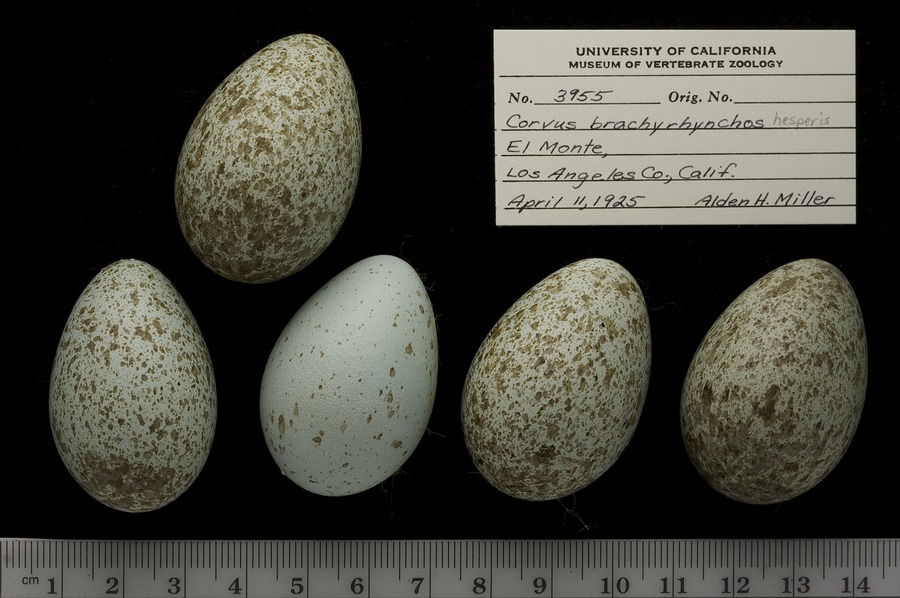 UNIVERSITY OF CALIFORNIA
MUSEUM OF VERTEBRATE ZOOLOGY
No. 3955 Orig. No.
Corvus brachyrhynchos hesperis
El Monte,
Los Angeles Co., Calif.
April 11, 1925 Alden H. Miller
cm 1 2 3 4 5 6 7 8 9 10 11 12 13 14